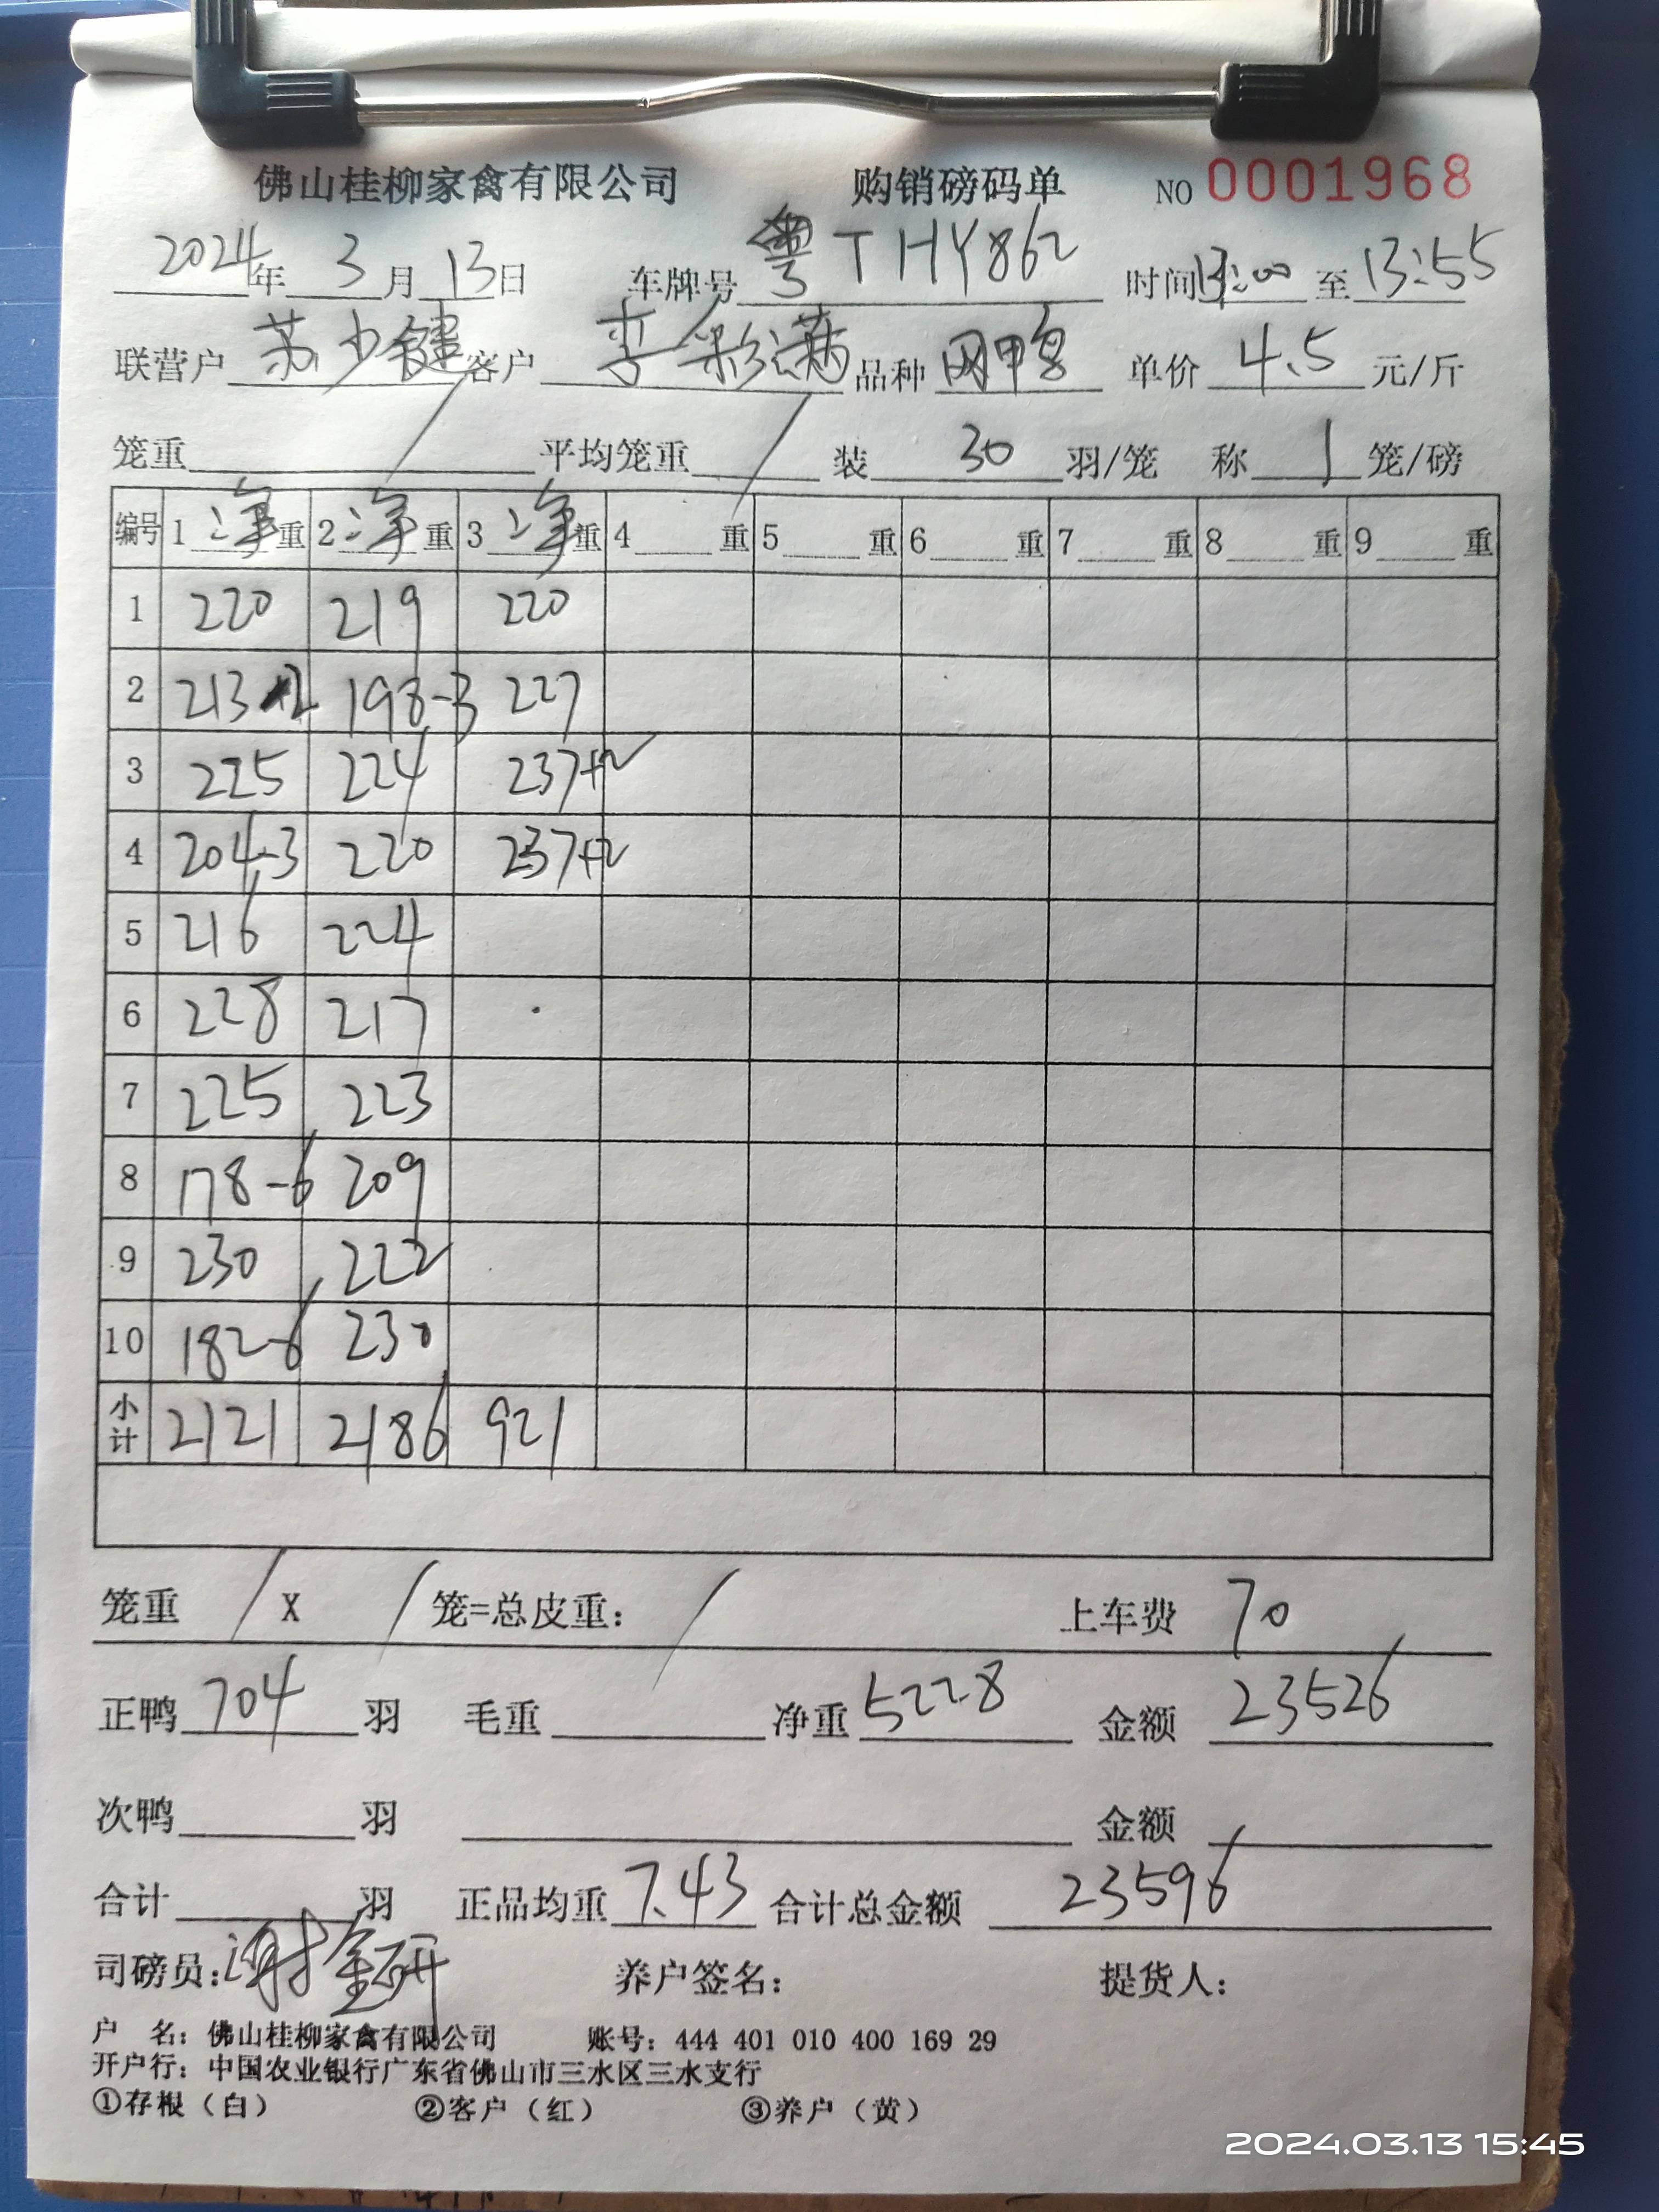 佛山桂柳家禽有限公司 购销磅码单 NO 0001968
2024年 3月 13日 车牌号 粤THY862 时间 13:00 至 13:55
联营户 苏少健 客户 李彩满 品种 网鸭 单价 4.5 元/斤
笼重 / 平均笼重 / 装 30 羽/笼 称 1 笼/磅
编号 1 净 重 2 净 重 3 净 重 4 重 5 重 6 重 7 重 8 重 9 重
1 220 219 220
2 213 +2 198-3 227
3 225 224 237+2
4 204-3 220 237+2
5 216 224
6 228 217
7 225 223
8 178-6 209
9 230 222
10 182-6 230
小计 2121 2186 921
笼重 / X / 笼=总皮重: / 上车费 70
正鸭 704 羽 毛重 净重 5228 金额 23526
次鸭 羽 金额
合计 羽 正品均重 7.43 合计总金额 23596
司磅员:谢金研 养户签名: 提货人:
户 名: 佛山桂柳家禽有限公司 账号: 444 401 010 400 169 29
开户行: 中国农业银行广东省佛山市三水区三水支行
①存根(白) ②客户(红) ③养户(黄)
2024.03.13 15:45